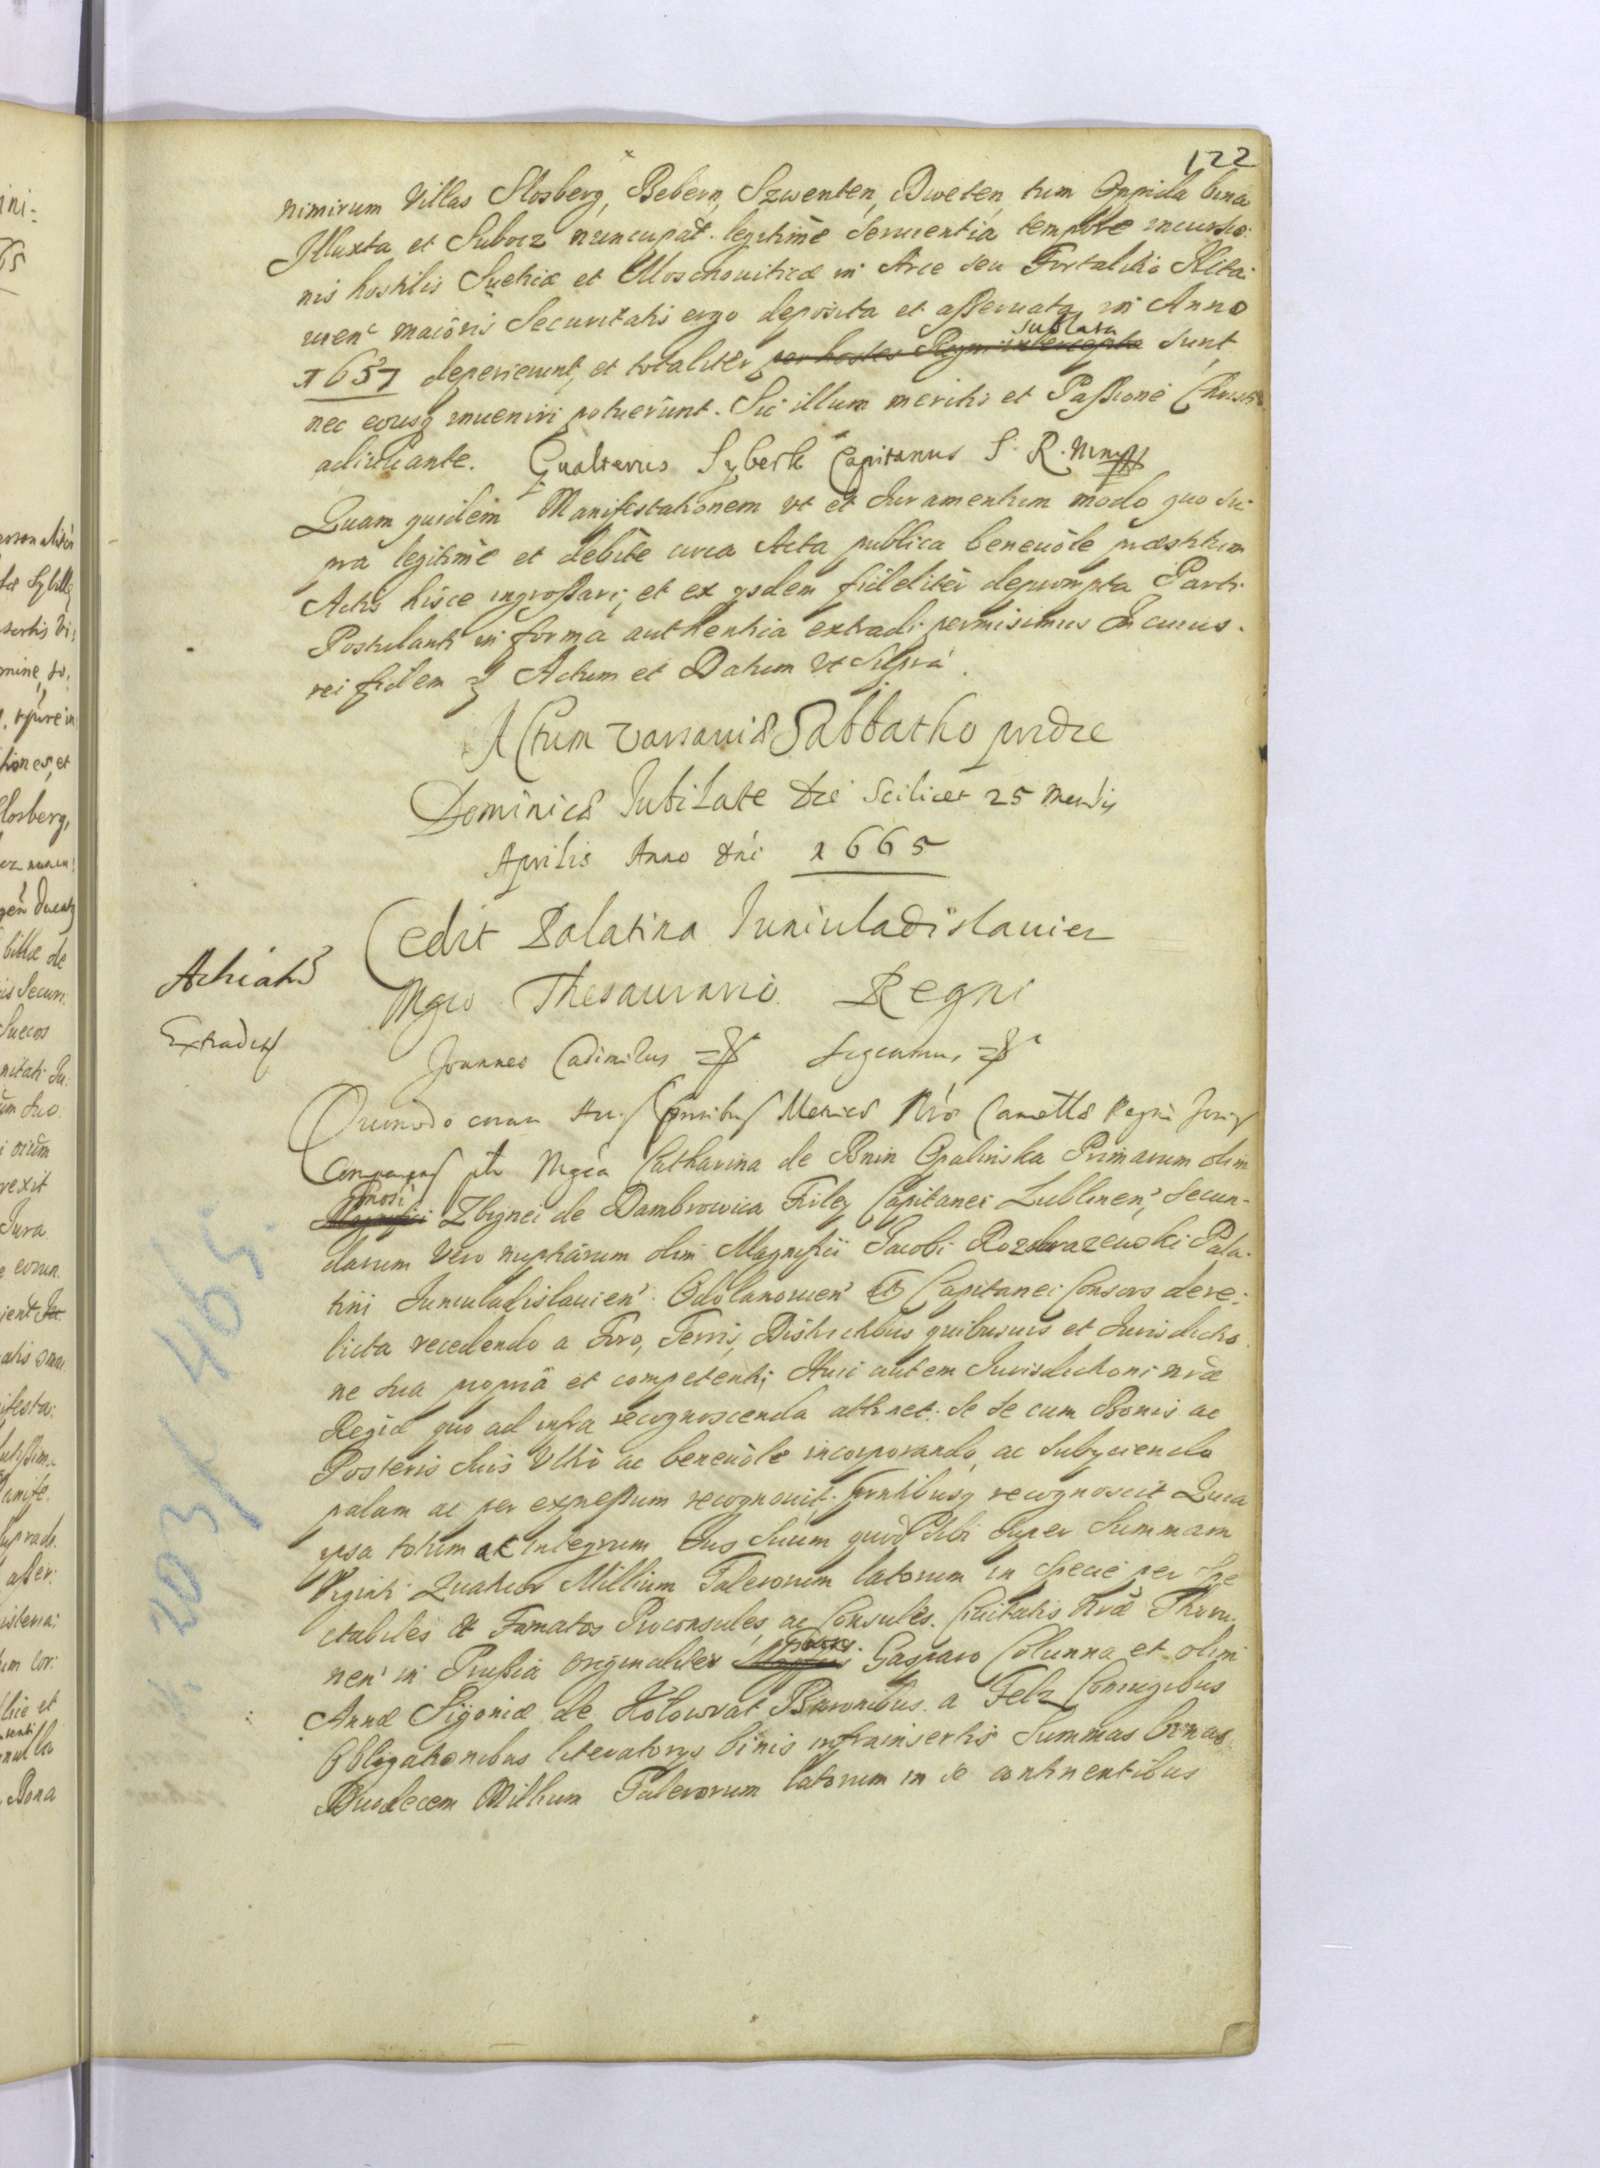 122
nimirum Villas Slosberg, Bebern, Szwenten, Dweten, tum Oppida bina
Illuxta et Subocz nuncupat. legitimè servientia tempore incursio:
nis hostilis Suetiæ et Moschoviticæ in Arce seu Fortalitio
maioris Securitatis ergo deposita et asservata in Anno
1657 deperierunt, et totaliter per hostes Regni intercepta sublata sunt,
nec eousq inveniri potuerunt. Sic illum meritis et Passione Christi
adiuvante. Gualterus Syberk Capitanus S. R. M
Quam quidem Manifestationem ut et Juramentum modo quo su
pra legitimè et debite circa Acta publica benevôle præstitum
Actis hisce ingrossari, et ex ysdem fideliter deprompta Parti
Postulanti in forma authentica extradi permisimus In cuius.
rei fidem Actum et Datum ut Suprà.
Actum Varsaviæ Sabbatho pridie
Dominicæ Jubilate die Scilicet 25 Mensis
Aprilis Anno dni 1665
Cedit Palatina Juniuladislavien
Mgco Thesaurario Regni
Extradit
Joannes Casimirus
Catharina de Bnin Opalinska Primarum olim
Zbignei de Dambrowica Firley Capitanei Lublinen, Secun-
darum vero nuptiarum olim Magnifici Jacobi Rozdrazewski Pala-
tini Juniuladislavien. Odolanovien Capitanei Consors dere:
licta recedendo a Foro, Terris, Districtibus quibusvis et Jurisdictio
ne sua propriâ et competenti, Huic autem Jurisdictioni nræ
Regiæ quo ad infra recognoscenda attinet. Se se cum Bonis ac
Posteris suis Ultrò ac benevôle incorporando, ac subyciendo
palam ac per expressum recognovit, recognoscit Quia
ipsa totum ac Integrum Jus Suum quod Sibi Super Summam
Viginti Quatuor Millium Talerorum latorum in specie per Spe
ctabiles et Famatos Proconsules, ac Consules Civitatis Nræ Thoru-
nen in Prussia originaliter Gasparo Colunna et olim
Annæ Sigoniæ de Kolowrat Baronibus a Felz Coniugibus
Obligationibus literatorys binis infrainsertis Summas binas
Duodecem Millium Talerorum latorum in se continentibus
203 465